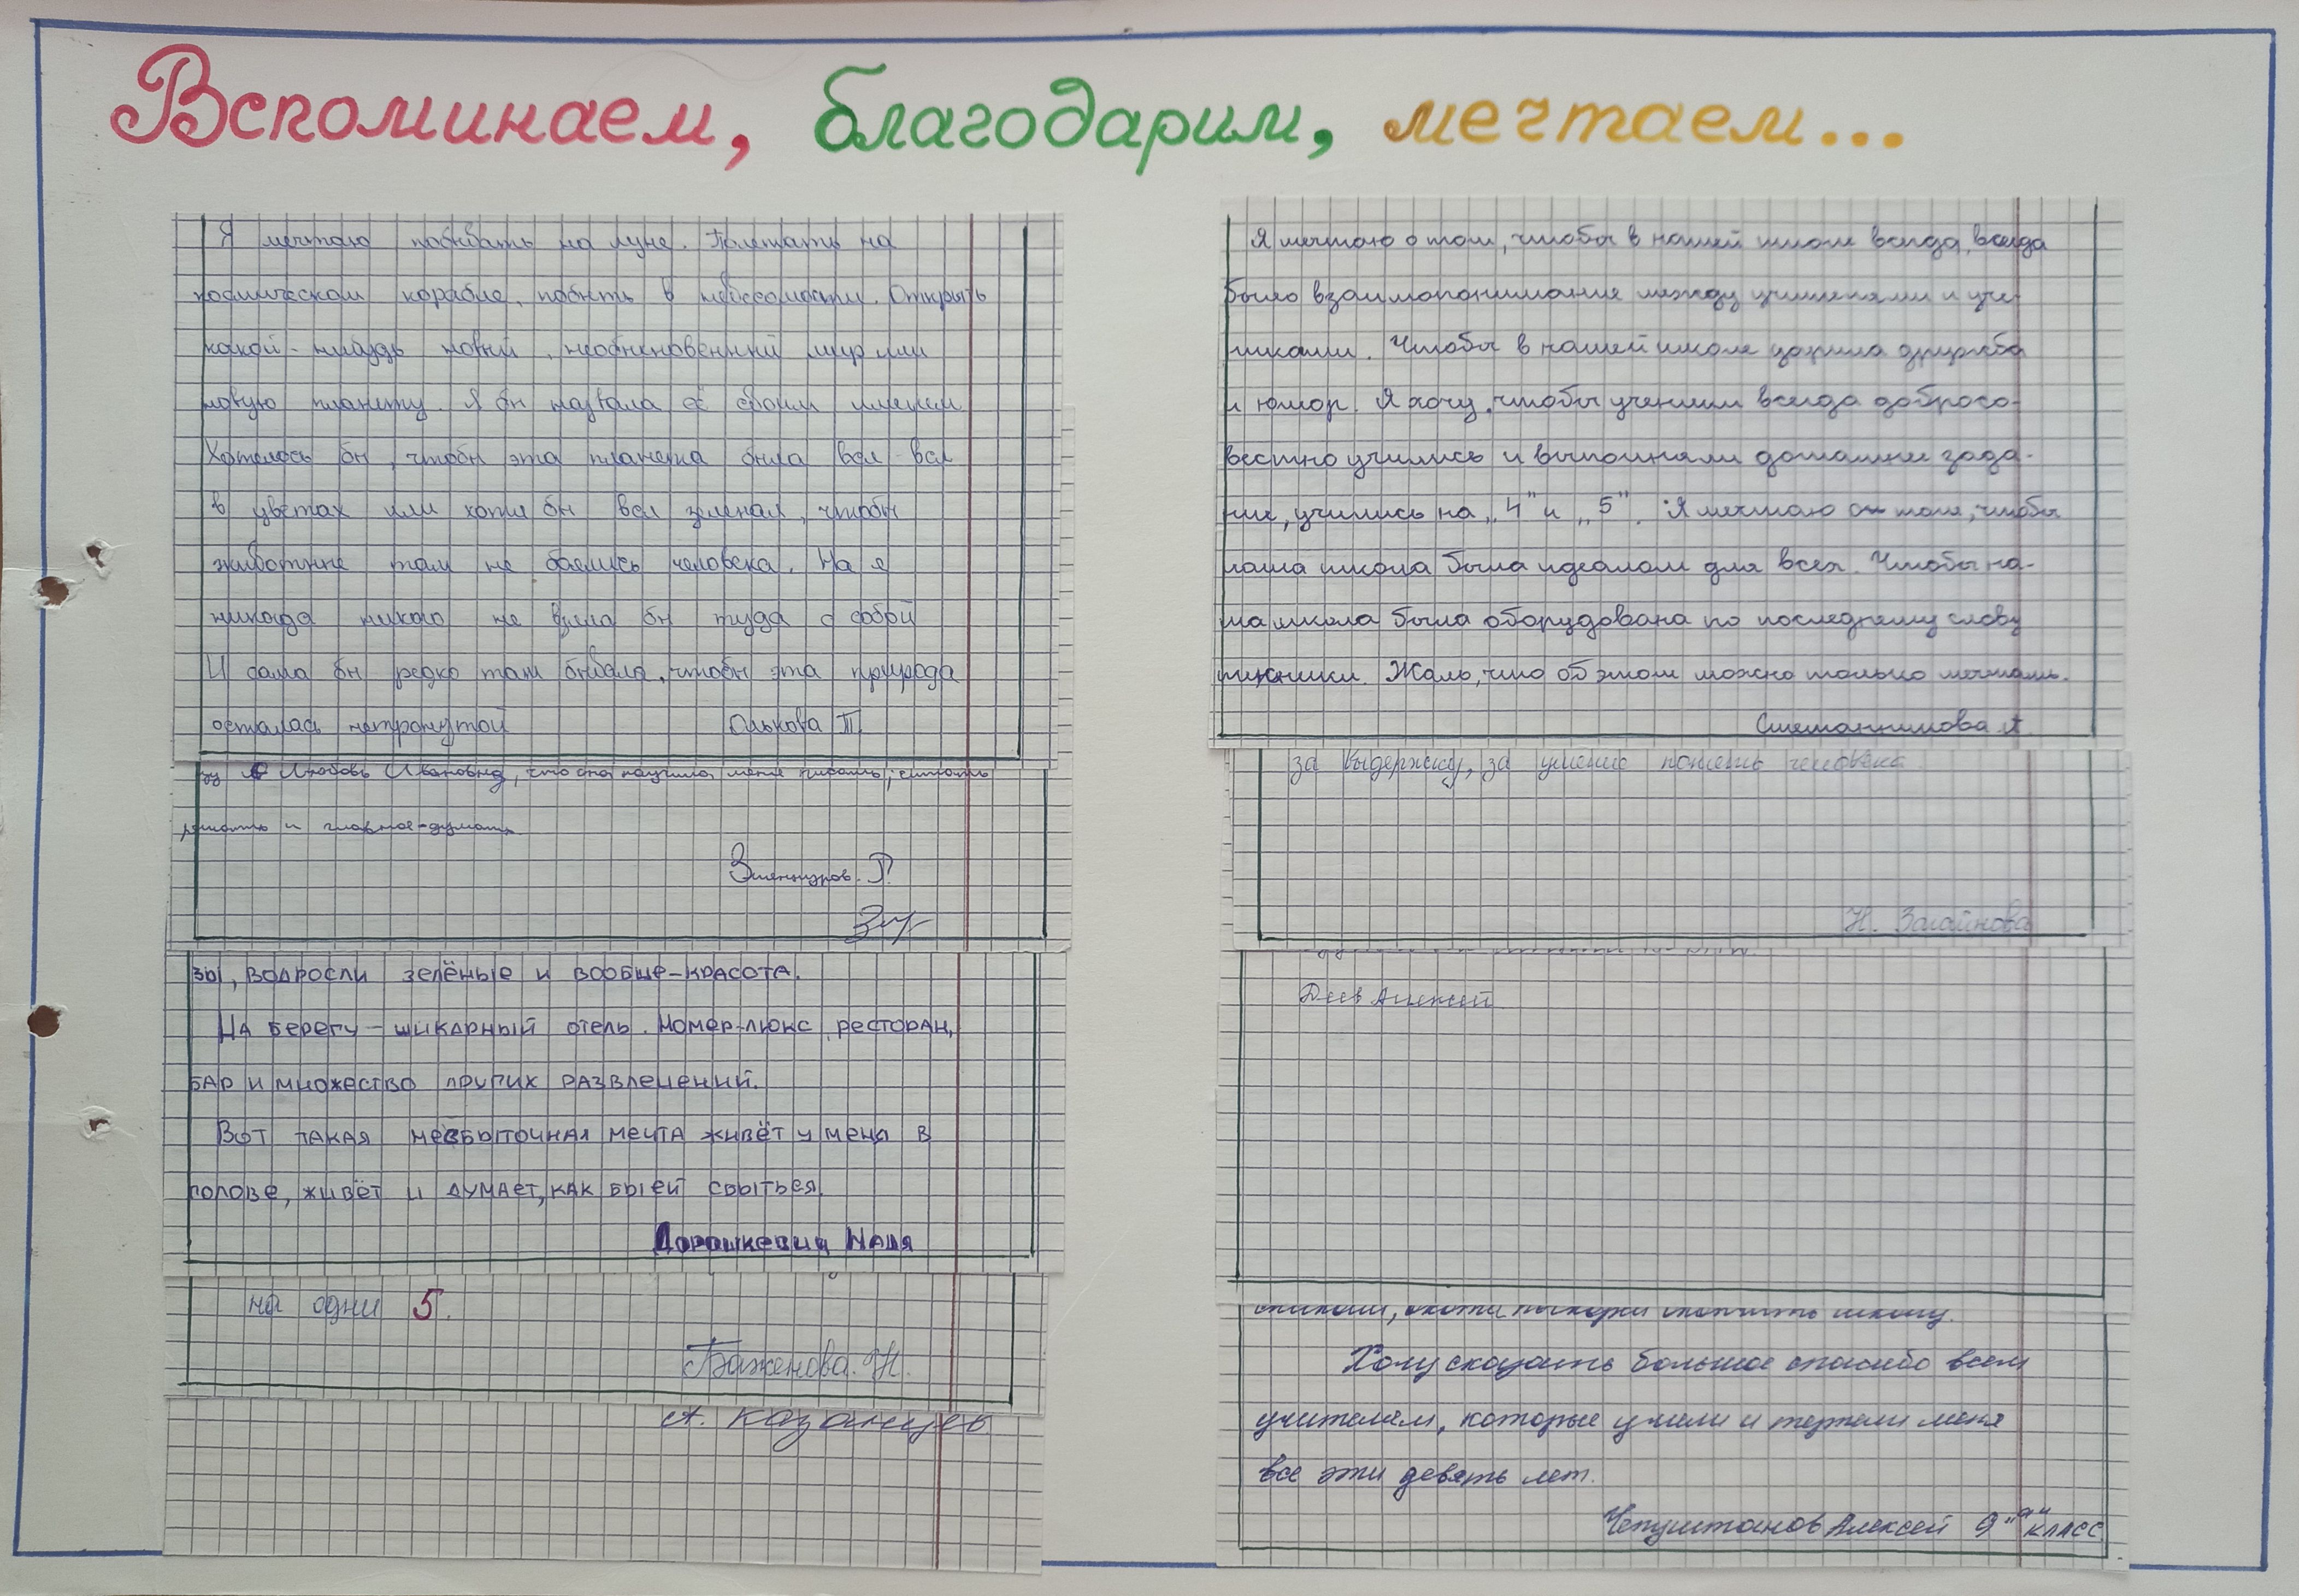 Вспоминаем, благодарим, мечтаем...
Я мечтаю побывать на луне. Полетать на
космическом корабле, побыть в невесомости. Открыть
какой-нибудь новый, необыкновенный мир или
новую планету. Я бы назвала её своим именем
Хотелось бы, чтобы эта планета была вся-вся
в цветах или хотя бы вся зеленая, чтобы
животные там не боялись человека. Но я
никогда никого не взяла бы туда с собой
И сама бы редко там бывала, чтобы эта природа
осталась нетронутой Олькова Т.
Любовь Ивановна, что она научила меня писать, считать
решать и главное-думать
Зиментуров. Р.
зы, водросли зелёные и вообще-красота.
На берегу-шикарный отель. Номер-люкс, ресторан,
бар и множество других развлечений.
Вот такая несбыточная мечта живёт у меня в
голове, живёт и думает, как бы ей сбыться.
Дорошкевич Надя
на одни 5.
Баженова. Н.
А. Казанцев
Я мечтаю о том, чтобы в нашей школе всегда, всегда
было взаимопонимание между учителями и уче-
никами. Чтобы в нашей школе царила дружба
и юмор. Я хочу, чтобы ученики всегда добросо-
вестно учились и выполняли домашние зада-
ние, учились на „4" и „5". Я мечтаю о том, чтобы
наша школа была идеалом для всех. Чтобы на-
ша школа была оборудована по последнему слову
техники. Жаль, что об этом можно только мечтать.
за выдержку, за умение понять человека
Н. Загайнова
Деев Алексей
окончить школу.
Хочу сказать большое спасибо всем
учителям, которые учили и терпели меня
все эти девять лет.
Чепуштанов Алексей 9"а" класс